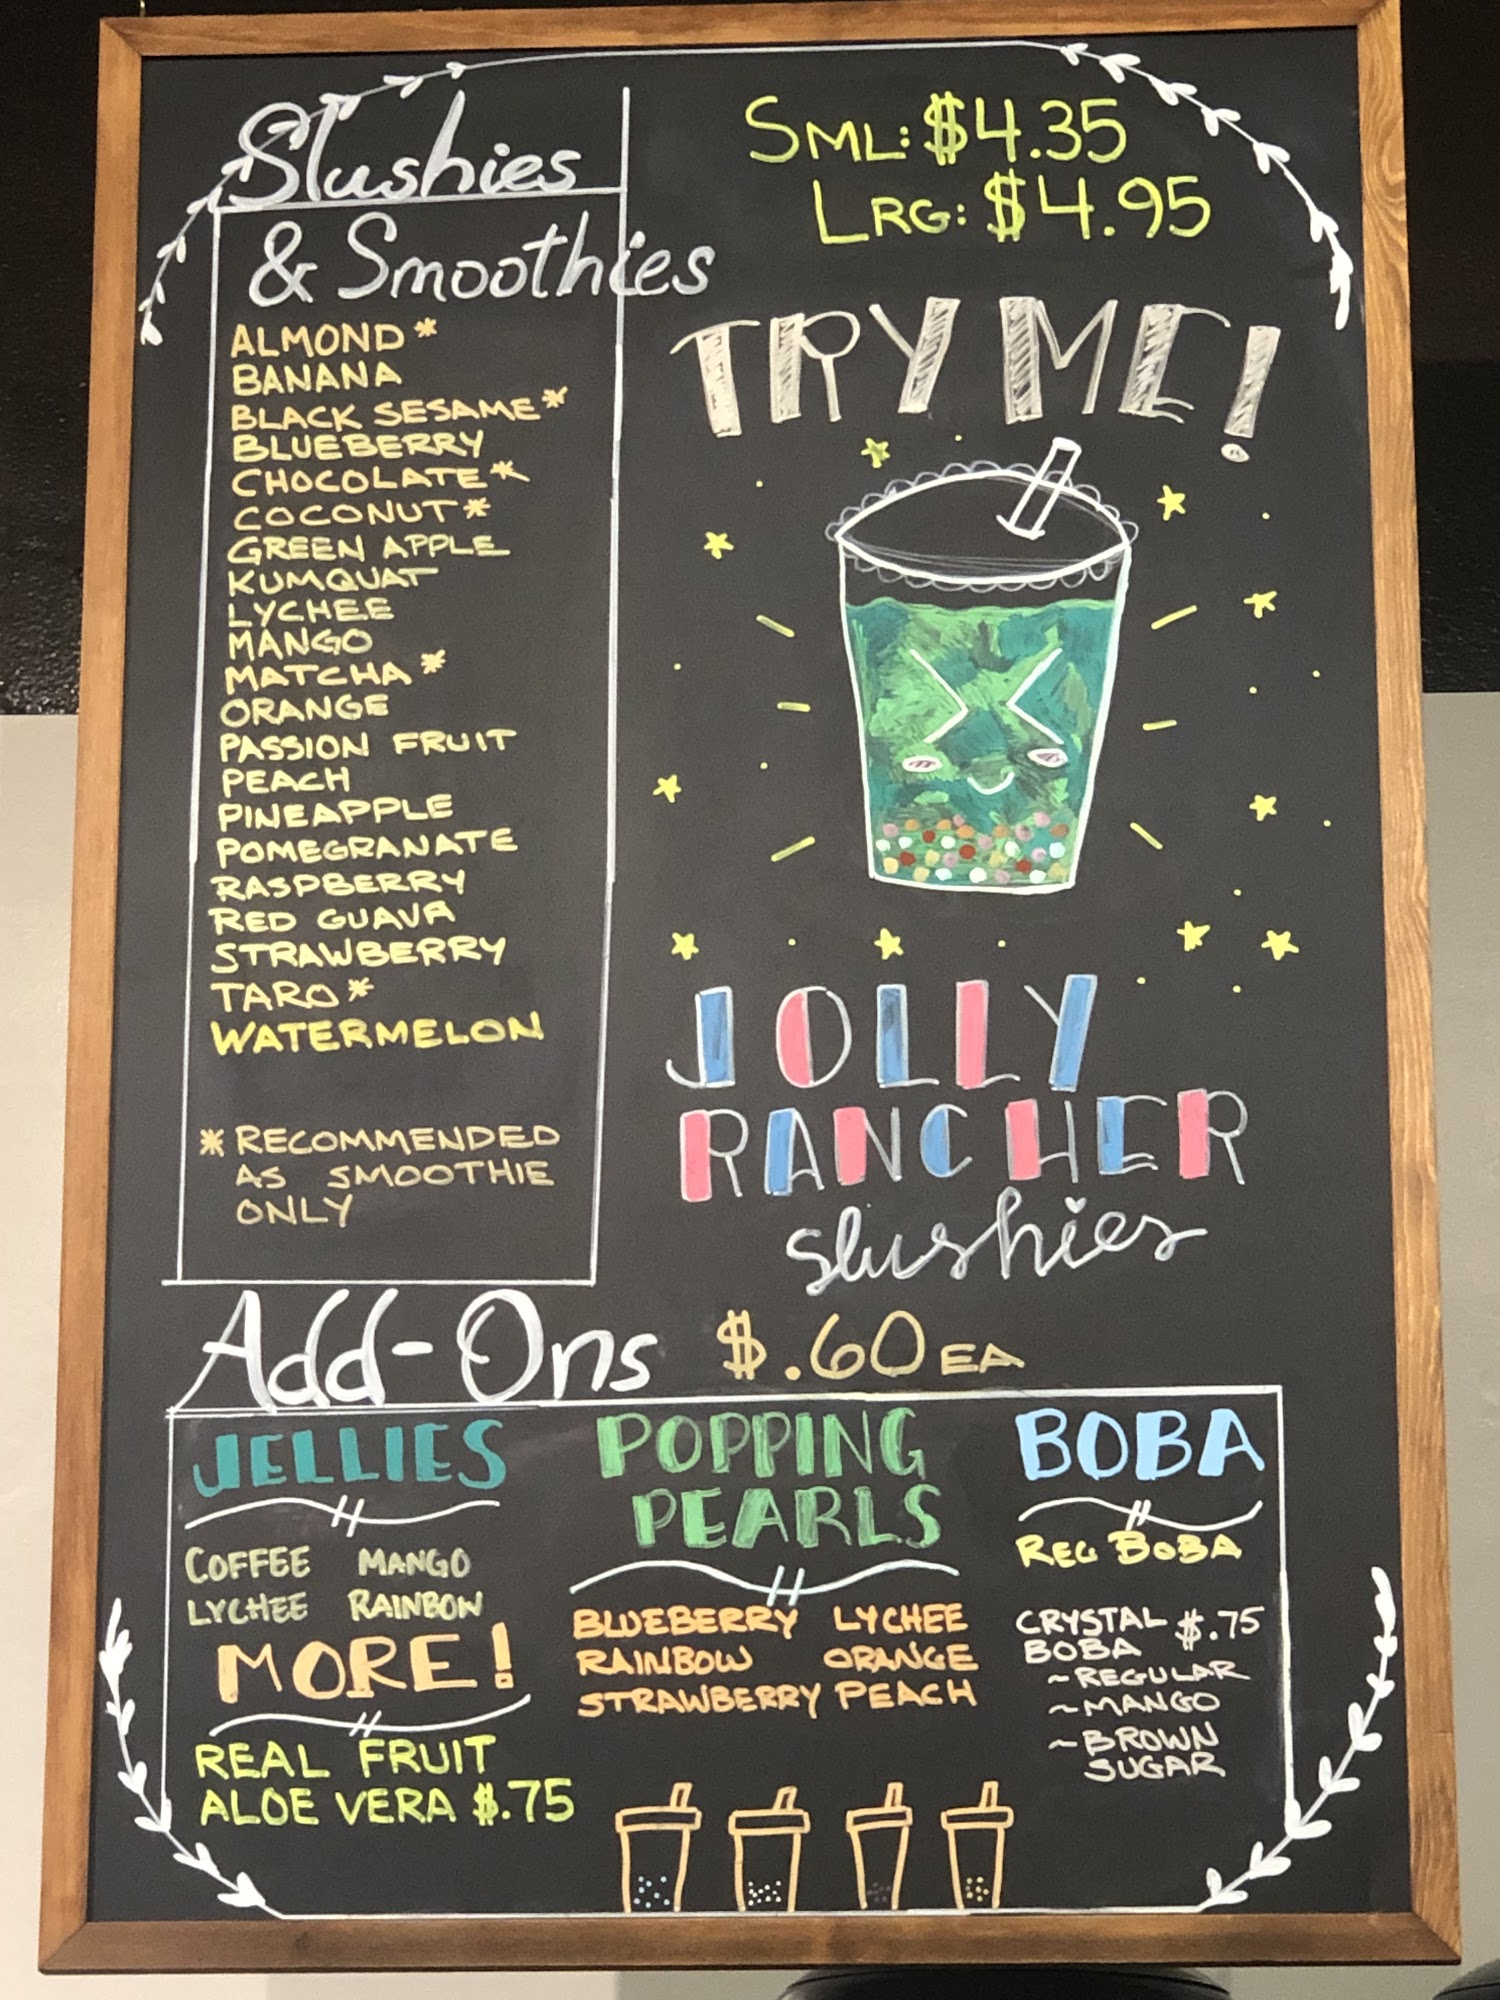 Slushies
& Smoothies
ALMOND*
BANANA
BLACK SESAME*
BLUEBERRY
CHOCOLATE*
COCONUT*
GREEN APPLE
KUMQUAT
LYCHEE
MANGO
MATCHA*
ORANGE
PASSION FRUIT
PEACH
PINEAPPLE
POMEGRANATE
RASPBERRY
RED GUAVA
STRAWBERRY
TARO*
WATERMELON
* RECOMMENDED
AS SMOOTHIE
ONLY
SML: $4.35
LRG: $4.95
TRY ME!
JOLLY
RANCHER
slushies
Add-Ons $.60 EA
JELLIES
COFFEE MANGO
LYCHEE RAINBOW
MORE!
REAL FRUIT
ALOE VERA $.75
POPPING
PEARLS
BLUEBERRY LYCHEE
RAINBOW ORANGE
STRAWBERRY PEACH
BOBA
REG BOBA
CRYSTAL $.75
BOBA
~REGULAR
~MANGO
~BROWN
SUGAR